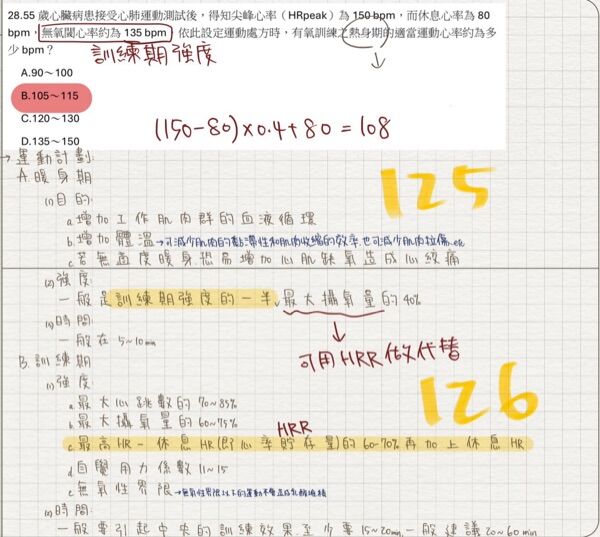 28.55 歲心臟病患接受心肺運動測試後，得知尖峰心率（HRpeak）為 150 bpm，而休息心率為 80
bpm，無氧閾心率約為 135 bpm，依此設定運動處方時，有氧訓練之熱身期的適當運動心率約為多
少 bpm？
訓練期強度
A.90～100
B.105～115
(150-80)×0.4+80=108
C.120～130
D.135～150
→運動計劃:
A.暖身期
125
(1)目的:
a.增加工作肌肉群的血液循環
b.增加體溫→可減少肌肉的黏滯性和肌肉收縮的效率,也可減少肌肉拉傷..etc
c.若無適度暖身恐易增加心肌缺氧造成心絞痛
(2)強度:
一般是訓練期強度的一半,最大攝氧量的40%
(3)時間:
一般在5~10min
可用HRR做代替
B.訓練期
(1)強度:
126
a.最大心跳數的70~85%
b.最大攝氧量的60~75%
HRR
c.最高HR-休息HR(即心率貯存量)的60-70%再加上休息HR
d.自覺用力係數11~15
e.無氧性界限→無氧性界限以下的運動不會造成乳酸堆積
(2)時間:
一般要引起中央的訓練效果,至少要15~20min,一般建議20~60min